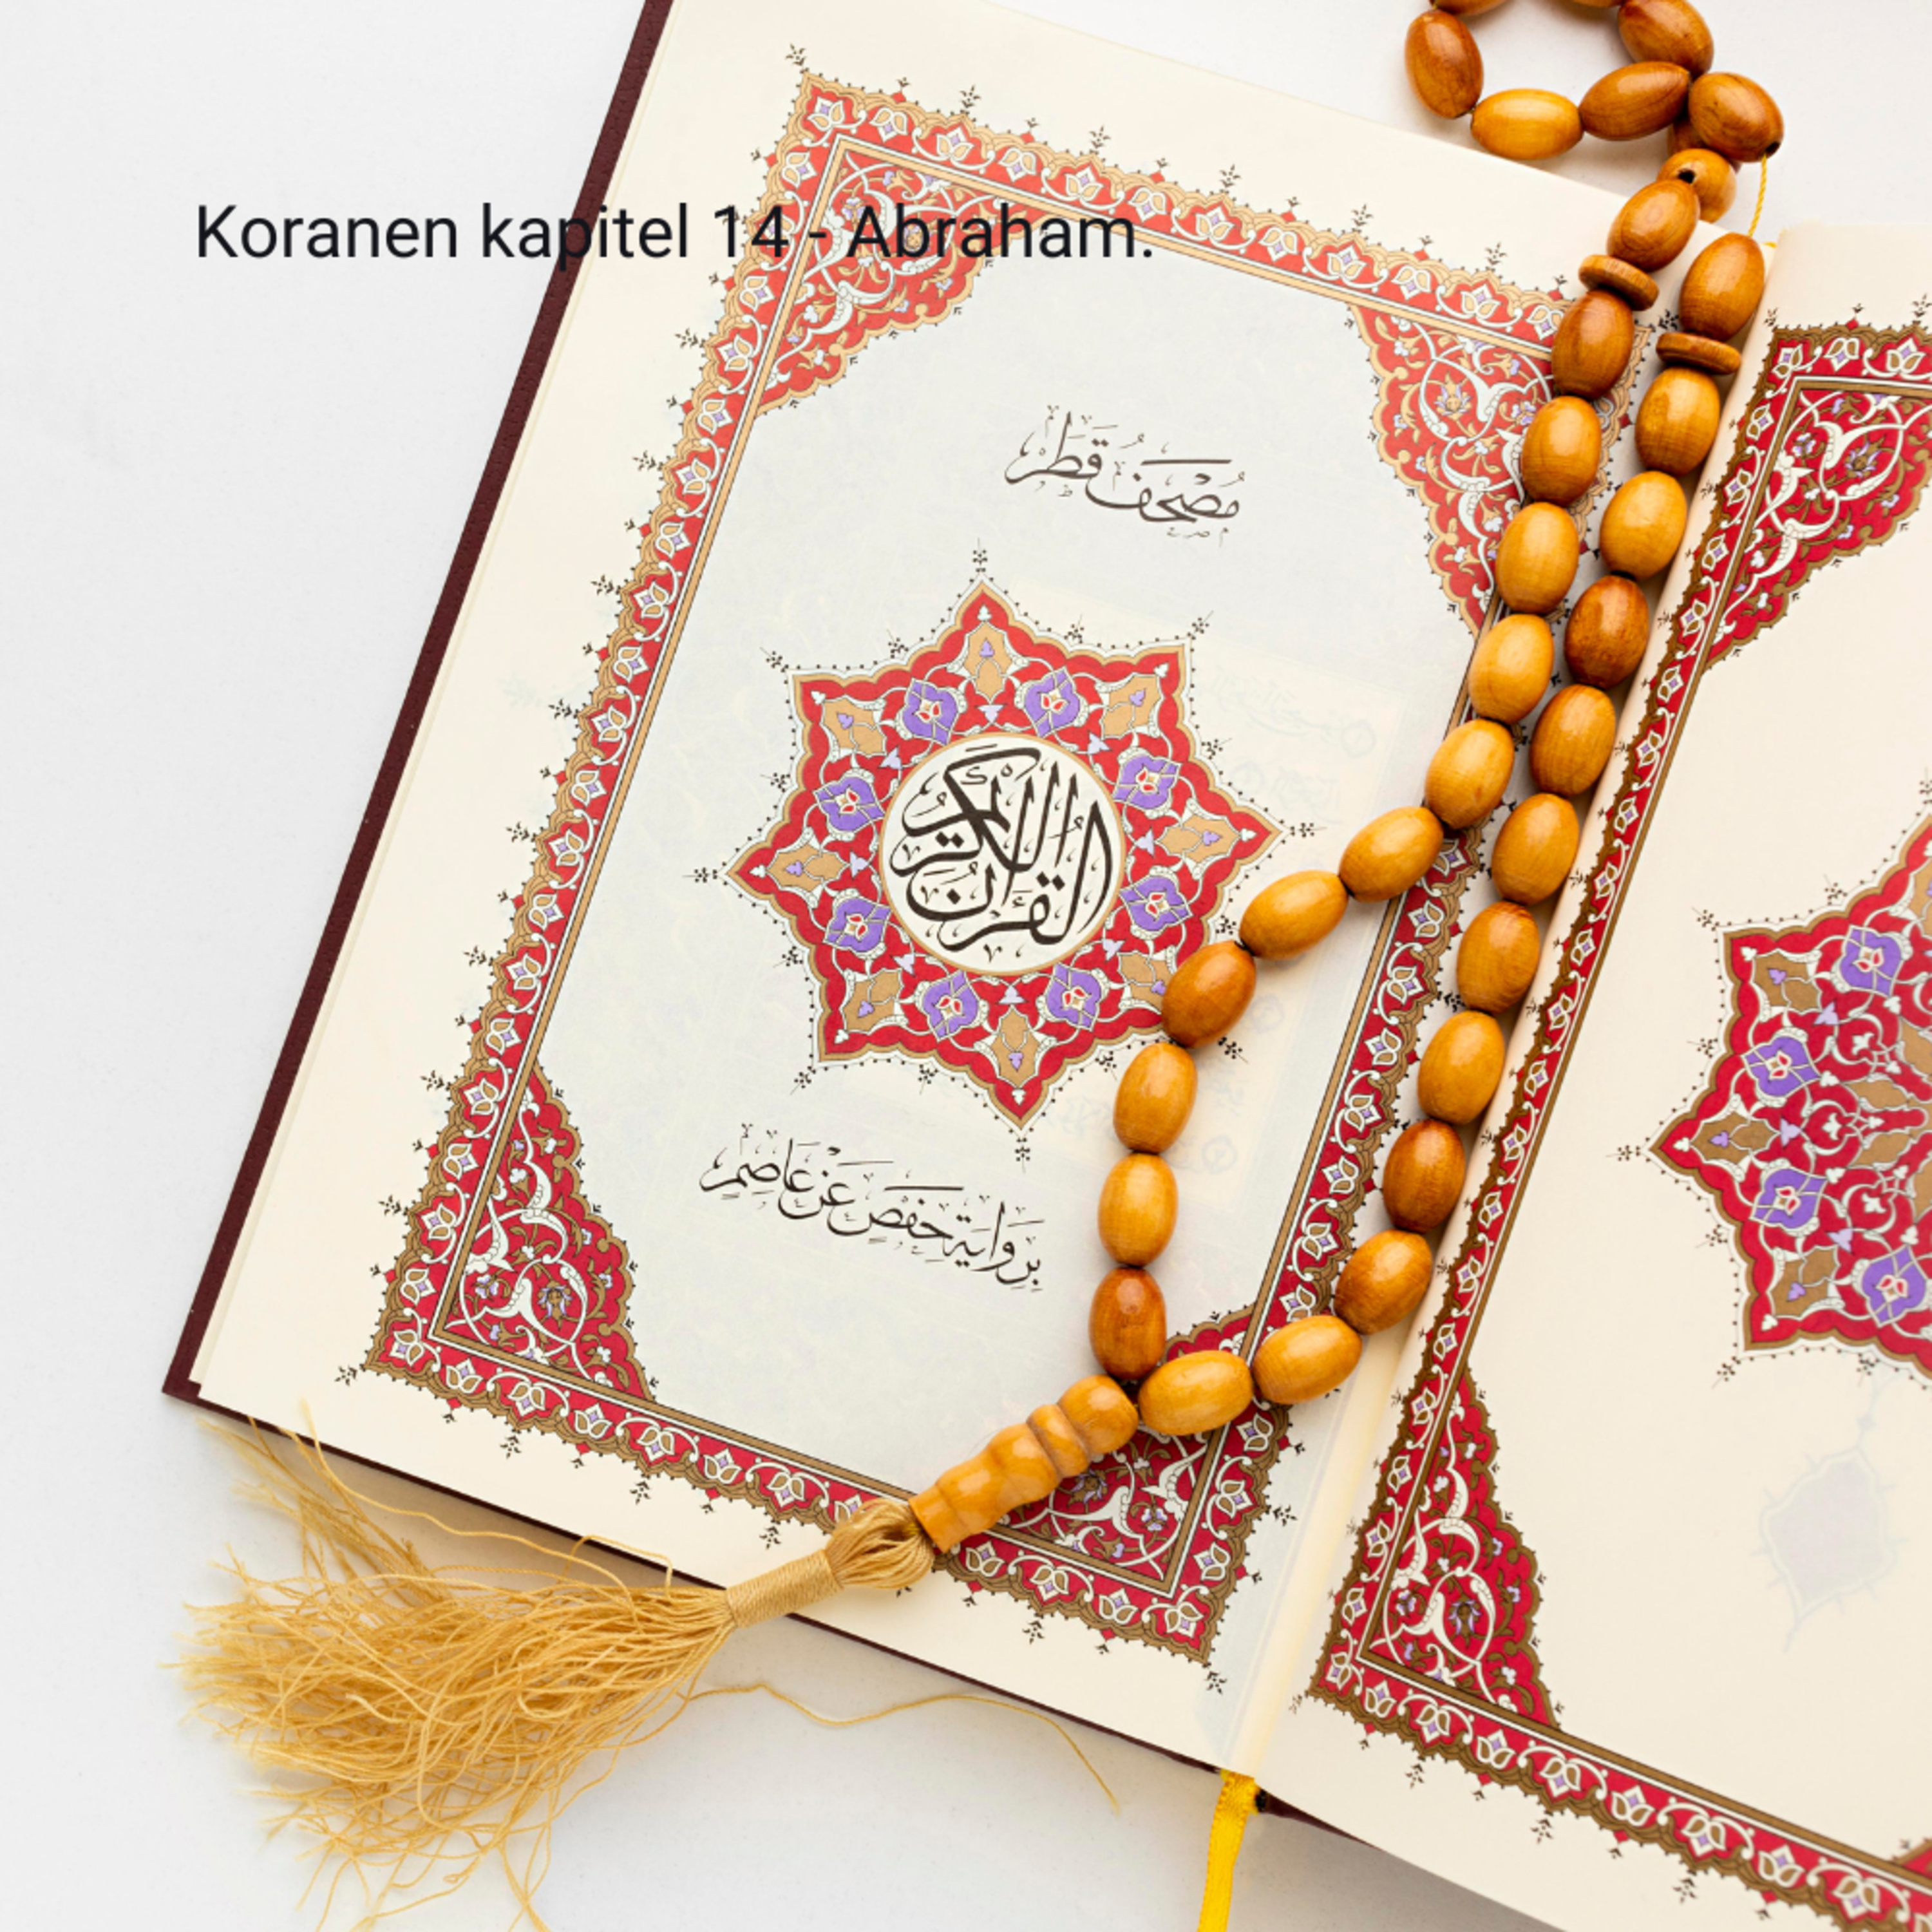 Koranen kapitel 14 - Abraham.
مُصْحَفُ قَطَر
القُرْآنُ الكَرِيم
بِرِوَايَةِ حَفْصٍ عَنْ عَاصِم